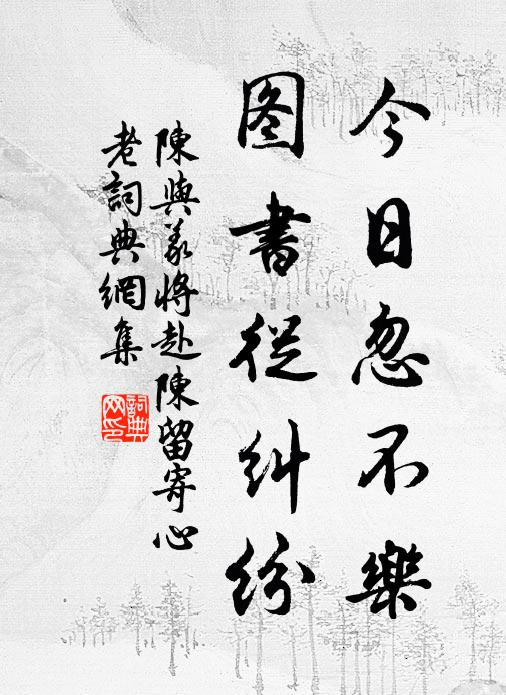 今日忽不樂
图書從糾紛
陳與義將赴陳留寄心
老詞典網集
詞典网印